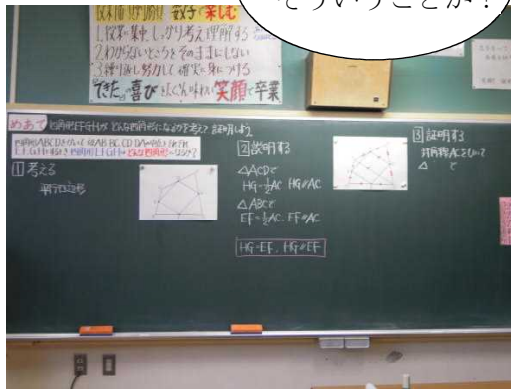 そういうことか！
数学を楽しむ
1.授業に集中ししっかり考え理解する
2.わからないところをそのままにしない
3.繰り返し努力して確実に身につける
できた。喜びをたくさん味わい笑顔で卒業
めあて 四角形EFGHがどんな四角形になるかを考えて証明しよう。
四角形ABCDをかいて辺AB,BC,CD,DAの中点を
四角形EFGHはどんな四角形になるか?
1 考える
平行四辺形
2 説明する
△ACDで
HG=½AC HG∥AC
△ABCで
EF=½AC, EF∥AC
HG=EF, HG∥EF
3 証明する
対角線ACをひいて
△ で